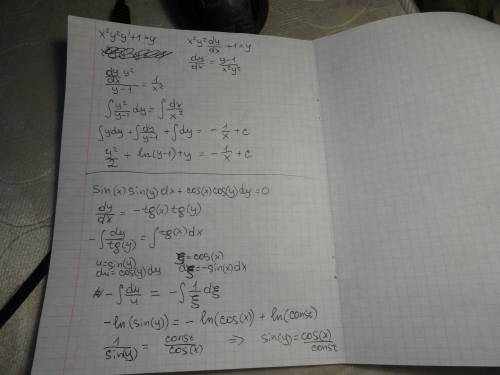 x²y²y'+1=y
x²y² dy/dx +1=y
dy/dx = (y-1)/(x²y²)
(dy/dx y²)/(y-1) = 1/x²
∫ y²/(y-1) dy = ∫ dx/x²
∫ydy + ∫ dy/(y-1) + ∫dy = -1/x + c
y²/2 + ln(y-1)+y = -1/x + c
sin(x) sin(y) dx + cos(x) cos(y) dy = 0
dy/dx = -tg(x) tg(y)
-∫ dy/tg(y) = ∫ tg(x) dx
u=sin(y) ξ=cos(x)
du=cos(y)dy dξ=-sin(x)dx
-∫ du/u = -∫ 1/ξ dξ
-ln(sin(y)) = -ln(cos(x)) + ln(const)
1/sin(y) = const/cos(x) ⇒ sin(y) = cos(x)/const